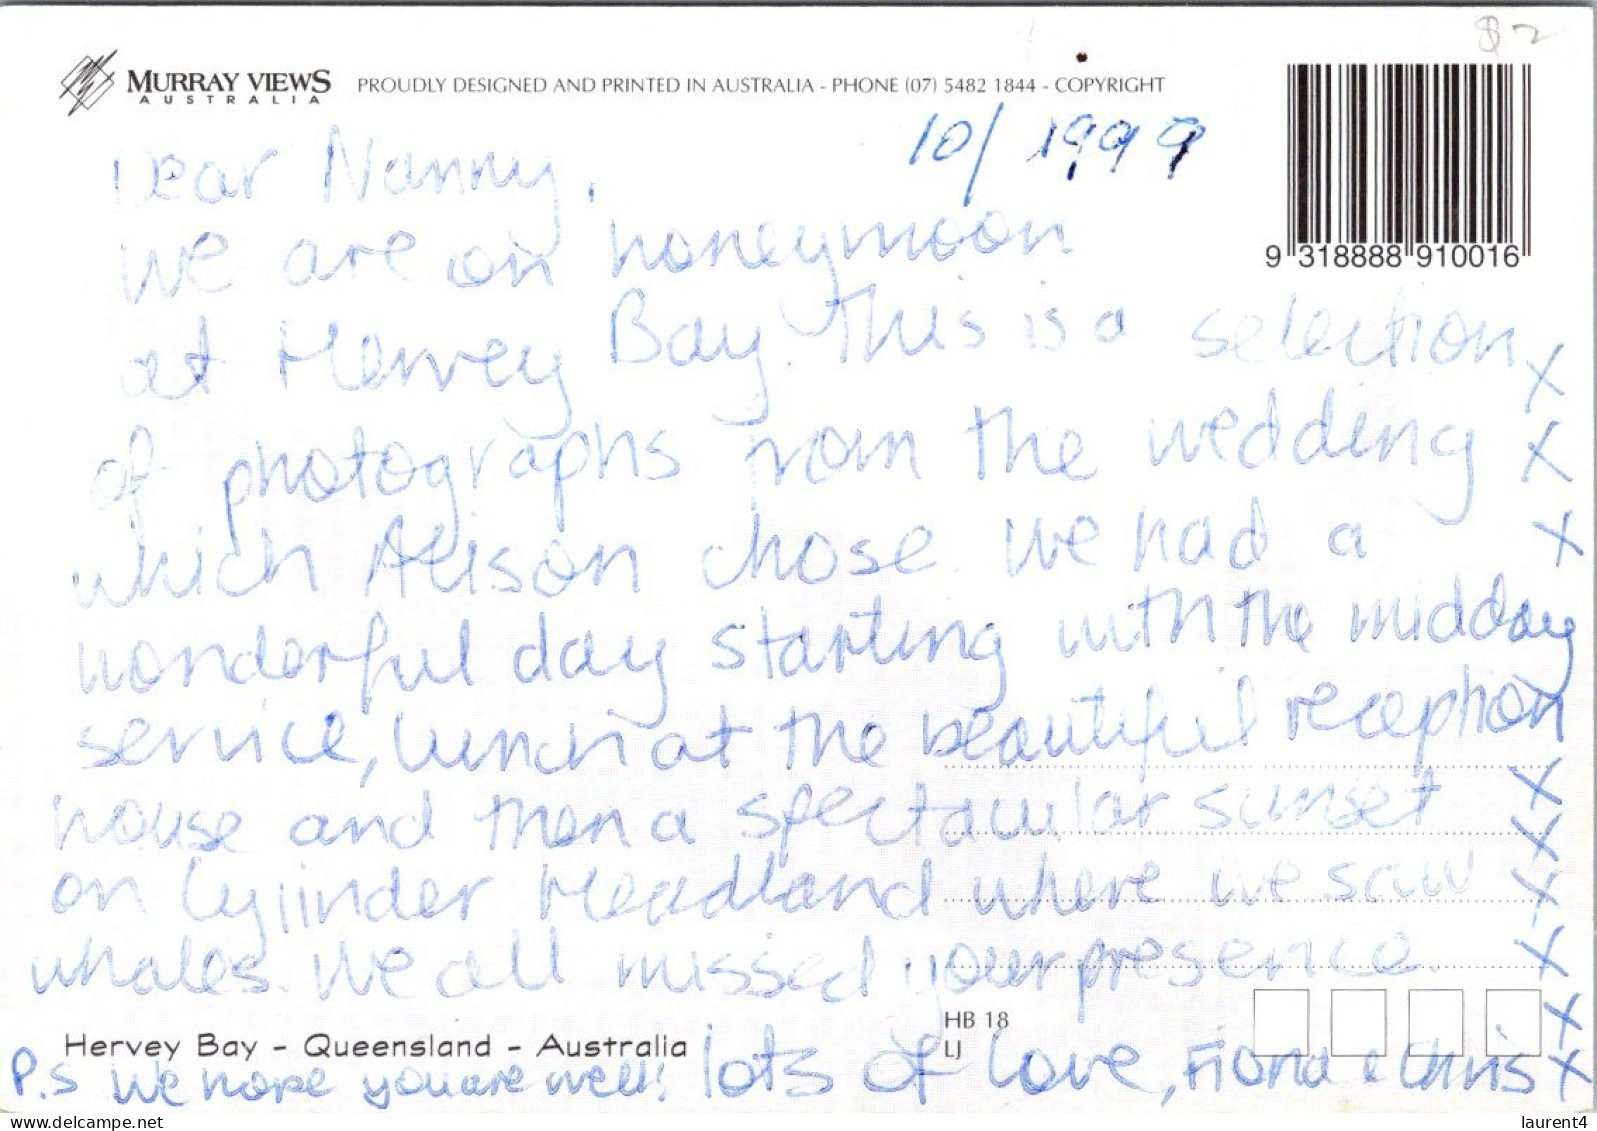 $2
MURRAY VIEWS
AUSTRALIA
PROUDLY DESIGNED AND PRINTED IN AUSTRALIA - PHONE (07) 5482 1844 - COPYRIGHT
10/ 1999
9 318888 910016
Dear Nanny,
We are on honeymoon
at Hervey Bay. This is a selection X
of photographs from the wedding X
which Alison chose. We had a X
wonderful day starting with the midday
service, lunch at the beautiful reception
house and then a spectacular sunset X X
on Cylinder Headland where we saw X
whales. We all missed your presence. X
HB 18 X
Hervey Bay - Queensland - Australia
LJ
lots of love, Fiona & Chris X
P.S We hope you are well!
laurent4
delcampe.net